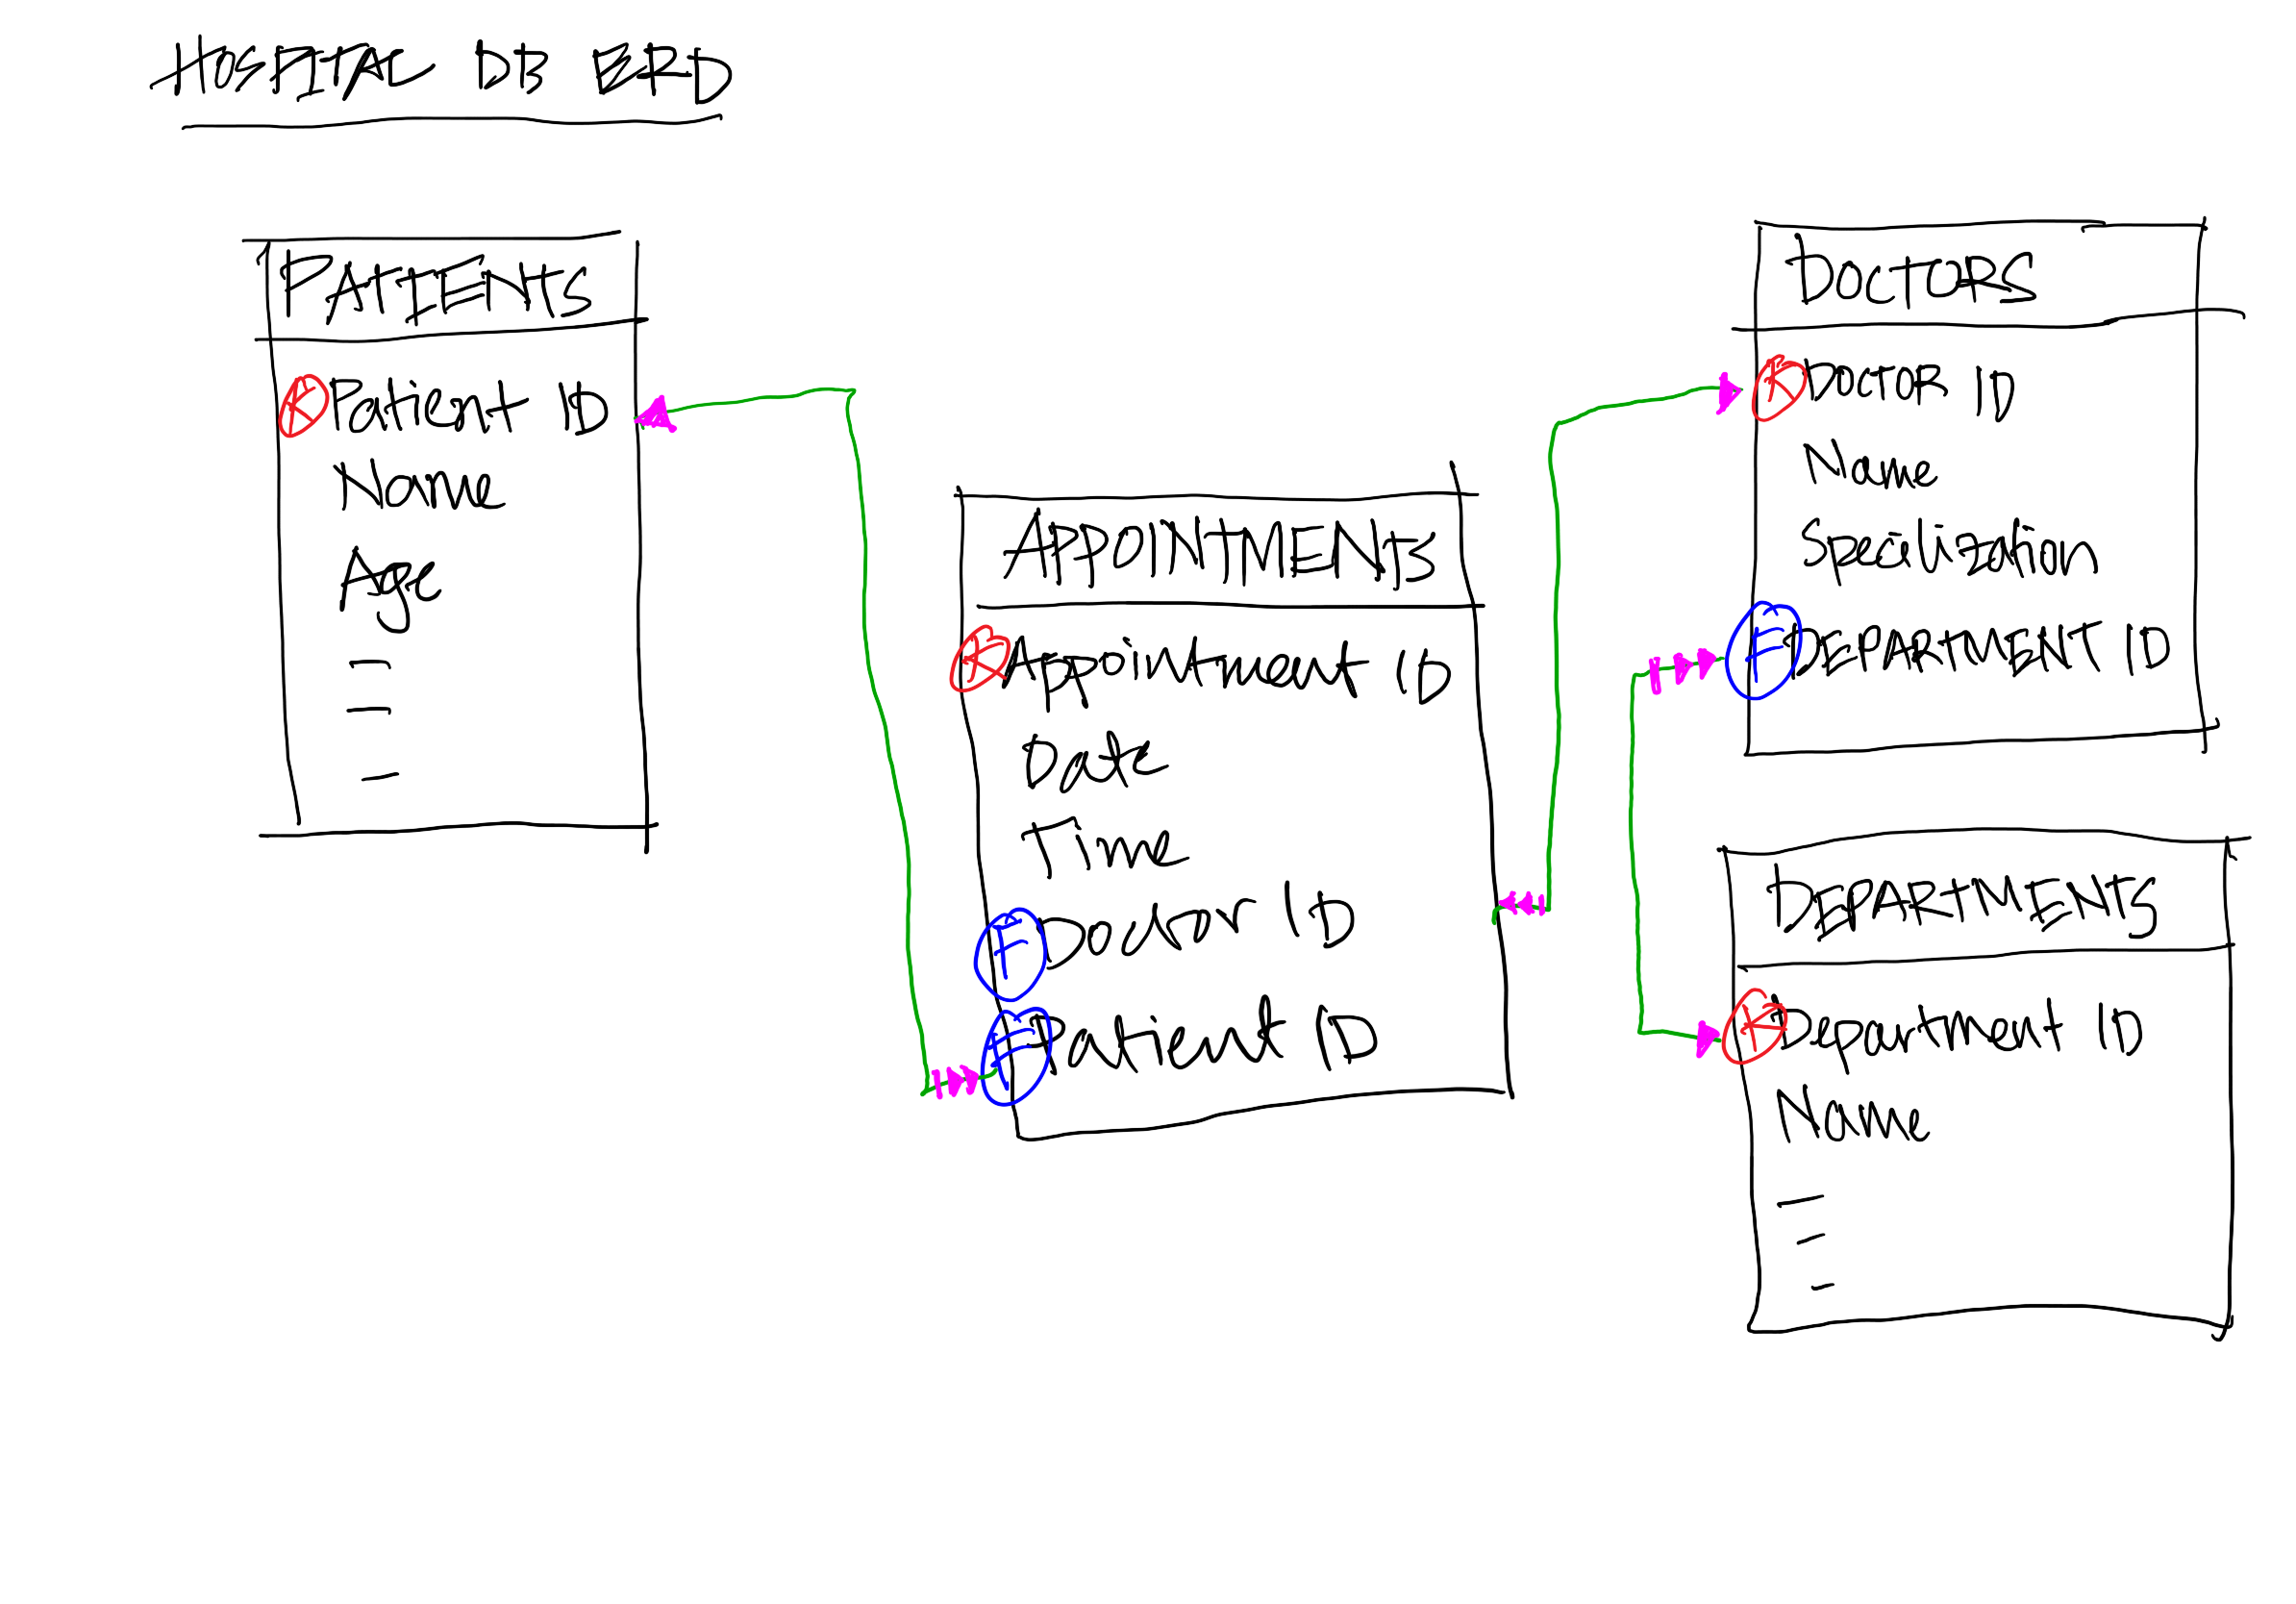 HOSPITAL DB ERD
PATIENTS
K Patient ID
Name
Age
APPOINTMENTS
K Appointment ID
Date
Time
F Doctor ID
F Patient ID
DOCTORS
K Doctor ID
Name
Specilization
F DEPARTMENT ID
DEPARTMENTS
K Department ID
Name